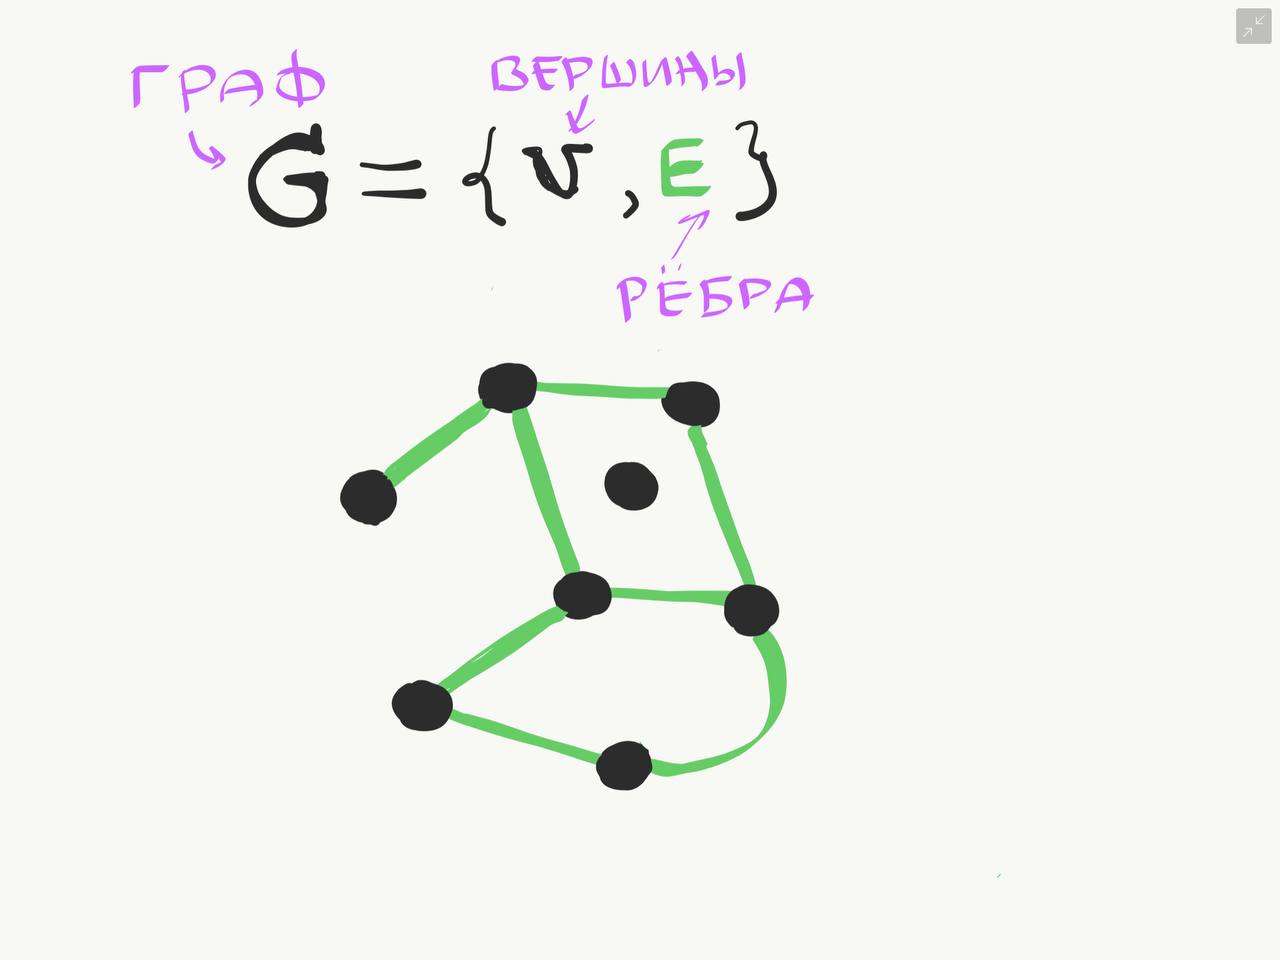 ГРАФ
ВЕРШИНЫ
G = { V , E }
РЁБРА